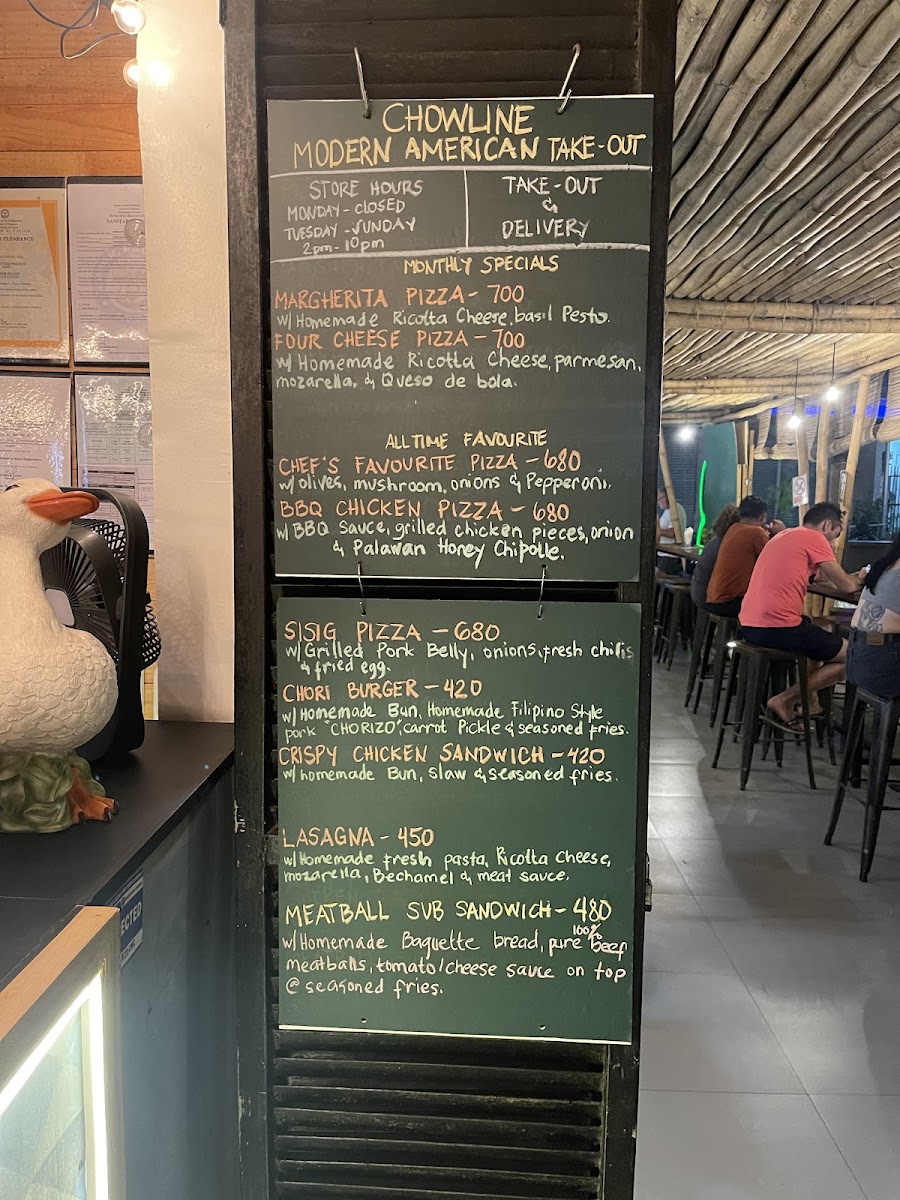 CHOWLINE
MODERN AMERICAN TAKE-OUT
STORE HOURS
MONDAY - CLOSED
TUESDAY - SUNDAY
2pm - 10pm
TAKE-OUT
&
DELIVERY
MONTHLY SPECIALS
MARGHERITA PIZZA - 700
w/ Homemade Ricotta Cheese, basil Pesto.
FOUR CHEESE PIZZA - 700
w/ Homemade Ricotta Cheese, parmesan,
mozarella, & Queso de bola.
ALL TIME FAVOURITE
CHEF'S FAVOURITE PIZZA - 680
w/ olives, mushroom, onions & Pepperoni.
BBQ CHICKEN PIZZA - 680
w/ BBQ Sauce, grilled chicken pieces, onion
& Palawan Honey Chipotle.
SISIG PIZZA - 680
w/ Grilled Pork Belly, onions, fresh chilis
& fried egg.
CHORI BURGER - 420
w/ Homemade Bun, Homemade Filipino Style
pork "CHORIZO", carrot Pickle & seasoned fries.
CRISPY CHICKEN SANDWICH - 420
w/ homemade Bun, slaw & seasoned fries.
LASAGNA - 450
w/ Homemade fresh pasta, Ricotta Cheese,
mozarella, Bechamel & meat sauce.
MEATBALL SUB SANDWICH - 480
w/ Homemade Baguette bread, pure 100% beef
meatballs, tomato/cheese sauce on top
@ seasoned fries.
CLEARANCE